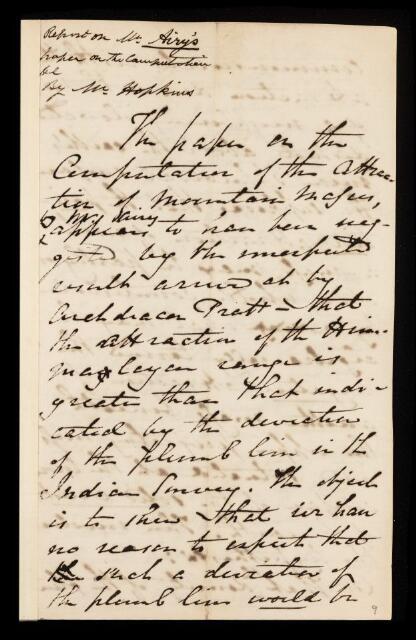 Report on Mr Airy's
paper on the Computation
&c
By Mr Hopkins
The paper on the
Computation of the Attrac-
tion of Mountain Masses,
by Mr Airy
appears to have been sug-
gested by the unexpected
result arrived at by
Archdeacon Pratt – that
the attraction of the Him-
malayan range is
greater than that indi-
cated by the deviation
of the plumb line in the
Indian Survey. The object
is to shew that we have
no reason to expect that
such a deviation of
the plumb line would be
9